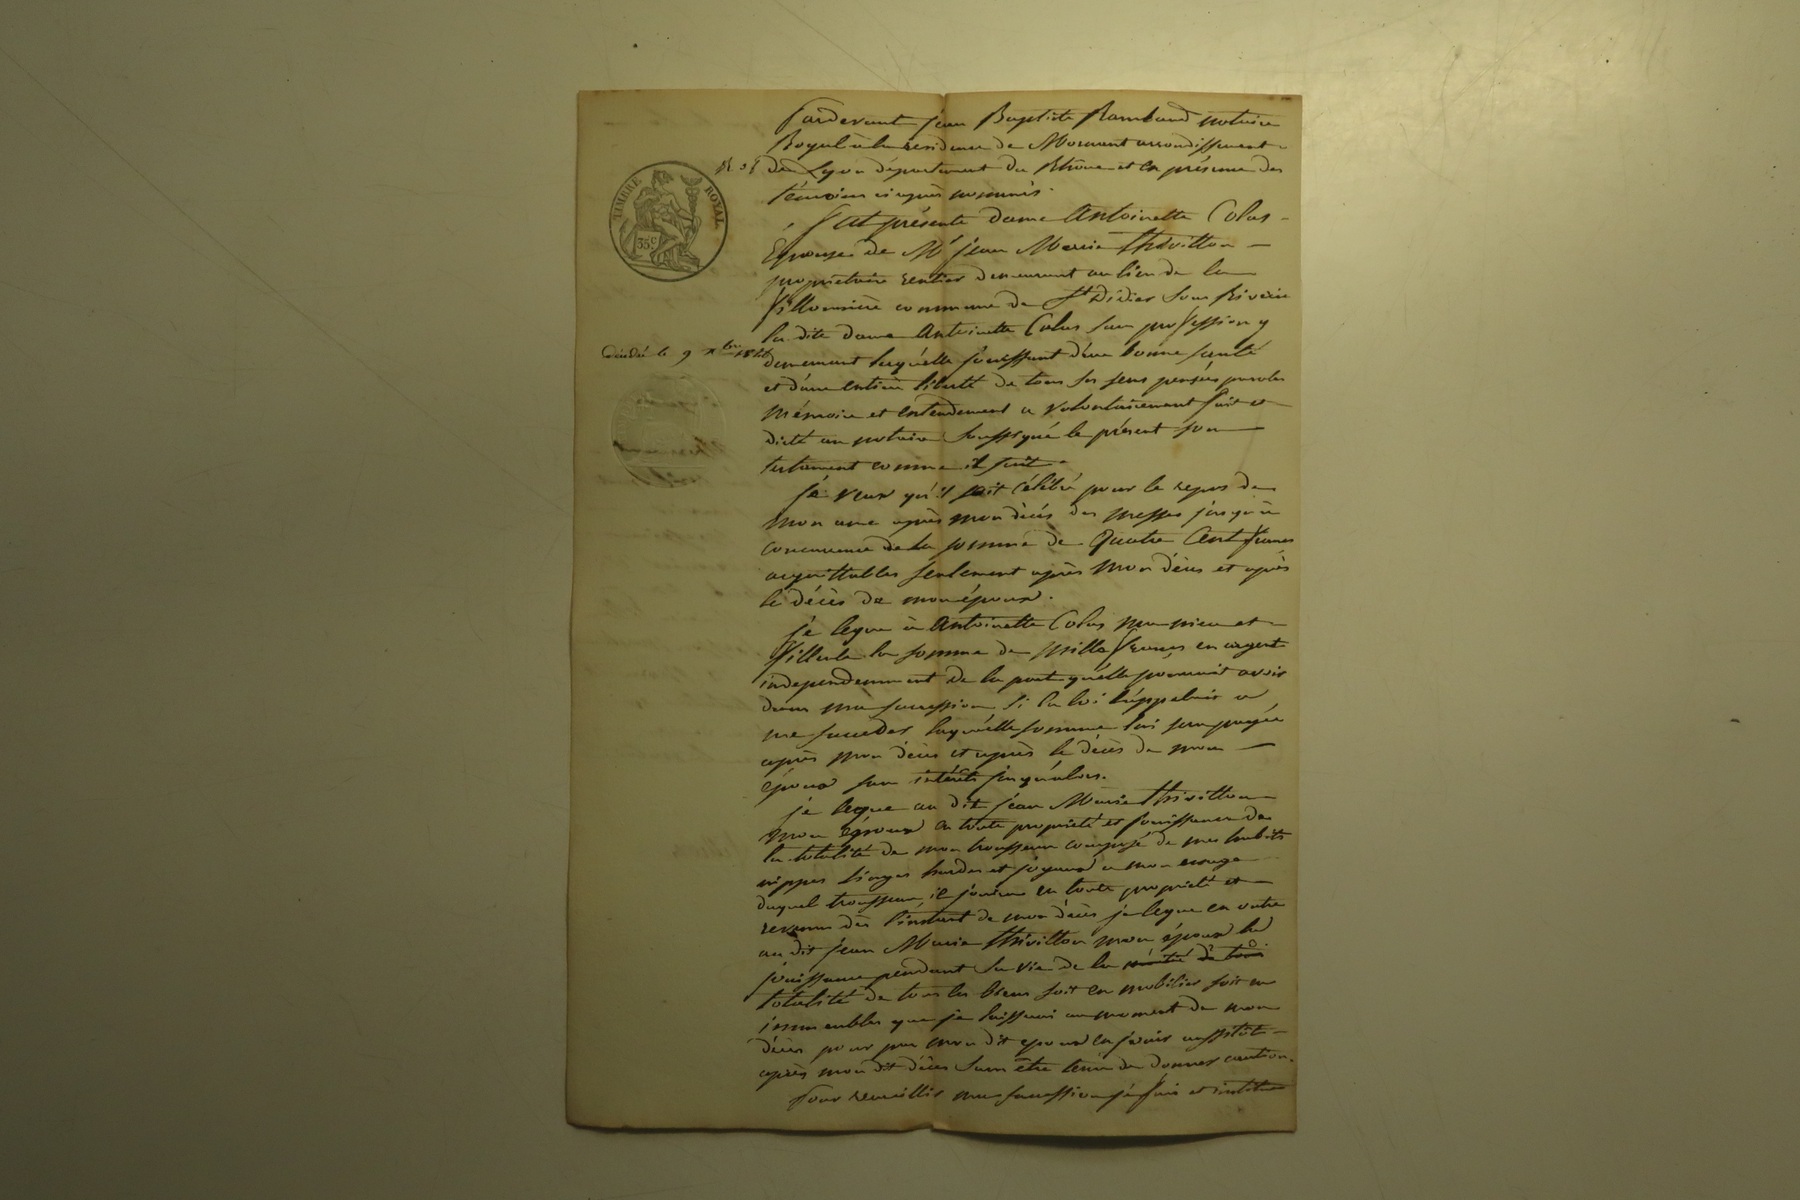 Pardevant jean Baptiste Rambaud notaire
Royal à la résidence de Mornant arrondissement
de Lyon département du Rhône et en présence des
témoins ci après nommés.
TIMBRE ROYAL
35c
fut présente dame Antoinette Colas
Epouse de Mr jean Marie Thivillon
propriétaire rentier demeurant au lieu de la
fillonnière commune de St Didier sous Riverie
la dite dame Antoinette Colas sans profession y
décédée le 9
demeurant laquelle jouissant d'une bonne santé
et d'une entière liberté de tous ses sens pensées paroles
mémoire et entendement a volontairement fait et
dicté au notaire soussigné le présent son
testament comme il suit
je veux qu'il soit célébré pour le repos de
mon ame après mon décès des messes jusqu'à
concurrence de la somme de quatre Cent francs
acquittables seulement après mon décès et après
le décès de mon époux.
je legue à Antoinette Colas ma niece et
filleule la somme de mille francs en argent
independemment de la part qu'elle pourrait avoir
dans ma succession si la loi l'appelait a
me succeder laquelle somme lui sera payée
après mon décès et après le décès de mon
époux sans intérêts jusqu'alors.
je legue au dit jean Marie Thivillon
mon époux en toute propriété et jouissance de
la totalité de mon trousseau composé de mes habits
nippes linges hardes et joyaux a mon usage
duquel trousseau il jouira en toute propriété et
revenu dès l'instant de mon décès je legue en outre
au dit jean Marie Thivillon mon époux la
jouissance pendant sa vie de la moitié de tous
totalité de tous les biens soit en mobilier soit en
immeubles que je laisserai au moment de mon
décès pour par mon dit epoux en jouir aussitôt
après mon dit décès sans être tenu de donner caution.
Pour recueillir ma succession je fais et institue